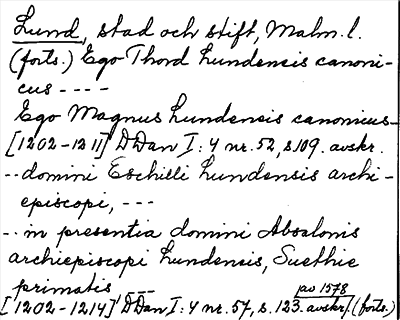 Lund, stad och stift, Malm. l.
(forts.) Ego Thord Lundensis canoni-
cus ----
Ego Magnus Lundensis canonicus_
[1202-1211] DDan I: 4 nr. 52, s. 109. avskr.
-- domini Eschilli Lundensis archi-
episcopi, ---
-- in presentia domini Absalonis
archiepiscopi Lundensis, Suethie
primatis ---
[1202-1214] DDan I: 4 nr. 57, s. 123. avskr. (forts.)
av 1578